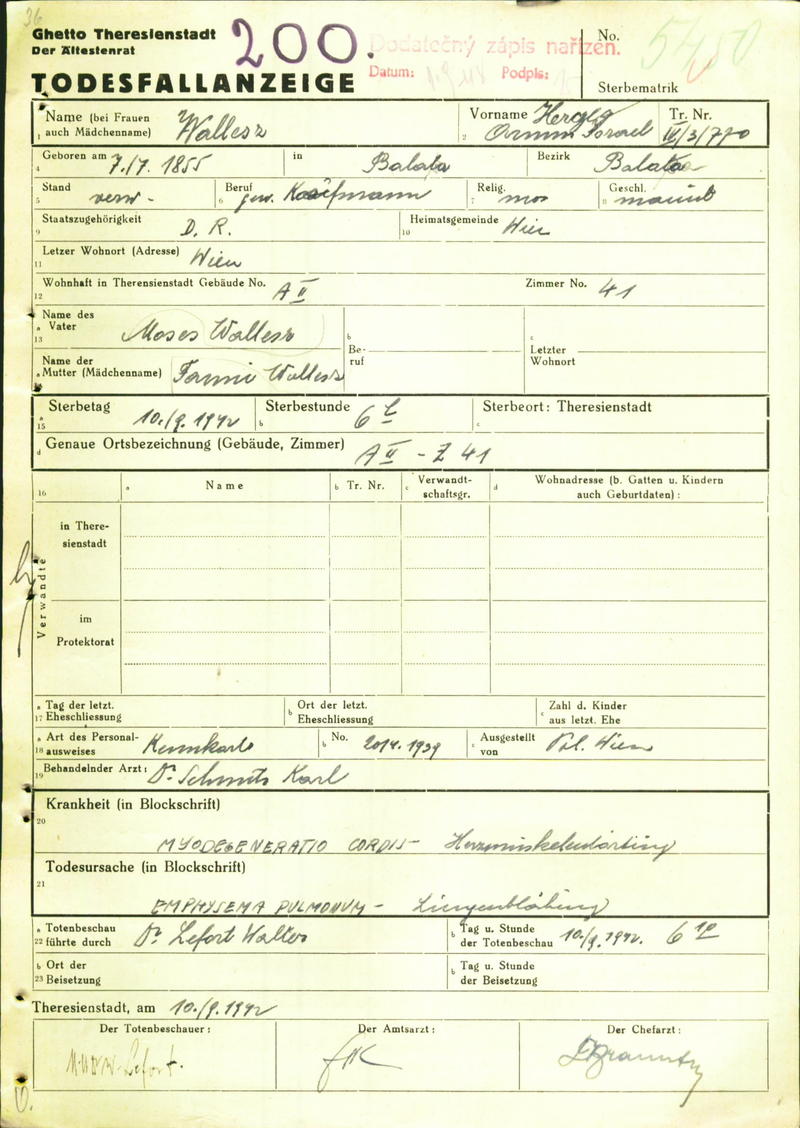 36
Ghetto Theresienstadt
Der Ältestenrat
200.
Dodatečný zápis nařízen.
Datum: Podpis:
TODESFALLANZEIGE
No. 5450
Sterbematrik
Name (bei Frauen auch Mädchenname) Wallesz
1
Vorname Israel
2
Tr. Nr. IV/3/770
Geboren am 7./7. 1855
4
in Balata
Bezirk Balata
Stand verw.
5
Beruf gew. Kaufmann
6
Relig. mos
7
Geschl. männl
8
Staatszugehörigkeit D. R.
9
Heimatsgemeinde Wien
10
Letzer Wohnort (Adresse) Wien
11
Wohnhaft in Theresienstadt Gebäude No. A II
12
Zimmer No. 41
Name des
a Vater Moses Wallesz
13
Name der
a Mutter (Mädchenname) Fanni Wallesz
b
Be-
ruf
c
Letzter
Wohnort
Sterbetag 10./9. 1942
a
15
Sterbestunde 6 h
b
Sterbeort: Theresienstadt
c
d Genaue Ortsbezeichnung (Gebäude, Zimmer) A II - Z 41
16
a Name
b Tr. Nr.
c Verwandt-
schaftsgr.
d Wohnadresse (b. Gatten u. Kindern
auch Geburtdaten) :
Verwandte
in There-
sienstadt
im
Protektorat
a Tag der letzt.
17 Eheschliessung
b Ort der letzt.
Eheschliessung
c Zahl d. Kinder
aus letzt. Ehe
a Art des Personal-
18 ausweises Kennkarte
b No. 2014. 1939
c Ausgestellt
von Pol. Wien
Behandelnder Arzt: Dr. Karl
19
Krankheit (in Blockschrift)
20
MYODEGENERATIO CORDIS - Herzmuskelentartung
Todesursache (in Blockschrift)
21
EMPHYSEMA PULMONUM - Lungenblähung
a Totenbeschau
22 führte durch Dr. Lefort Walter
b Tag u. Stunde
der Totenbeschau 10./9. 1942. 6 10
b Ort der
23 Beisetzung
b Tag u. Stunde
der Beisetzung
Theresienstadt, am 10./9. 1942
Der Totenbeschauer :
Der Amtsarzt :
Der Chefarzt :
Lefort.